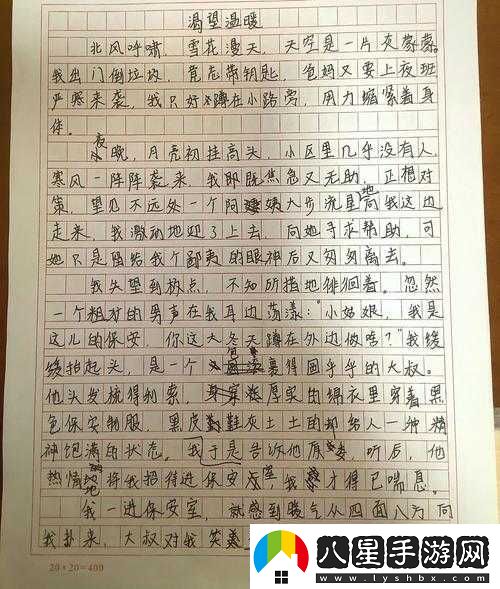 渴望温暖
北风呼啸，雪花漫天，天空是一片灰蒙蒙。
我出门倒垃圾，竟忘带钥匙，爸妈又要上夜班
严寒来袭，我只好蹲在小路旁，用力缩紧着身
体。
夜晚，月亮初挂高头，小区里几乎没有人，
寒风一阵阵袭来，我即既焦急又无助，正想对
策，望见不远处一个阿姨大步流星地向我这边
走来，我激动地迎了上去，向她寻求帮助，可
她只是留给我个鄙夷的眼神后又匆匆离去。
我失望到极点，不知所措地徘徊着。忽然
一个粗犷的男声在我耳边荡漾：“小姑娘，我是
这儿的保安，你这大冬天蹲在外边做啥？”我缓
缓抬起头，是一个裹得圆乎乎的大叔。
他头发梳得利索，厚实的绵衣里穿着黑
色保安制服，黑皮鞋灰土土的却给人一种精
神饱满的状态。我于是告诉他原委，听后，他
热情地将我招待进保安室，我才得已喘息。
我一进保安室，就感到暖气从四面八方向
我扑来，大叔对我笑
20×20=400
八星手游网
www.lyshbx.com